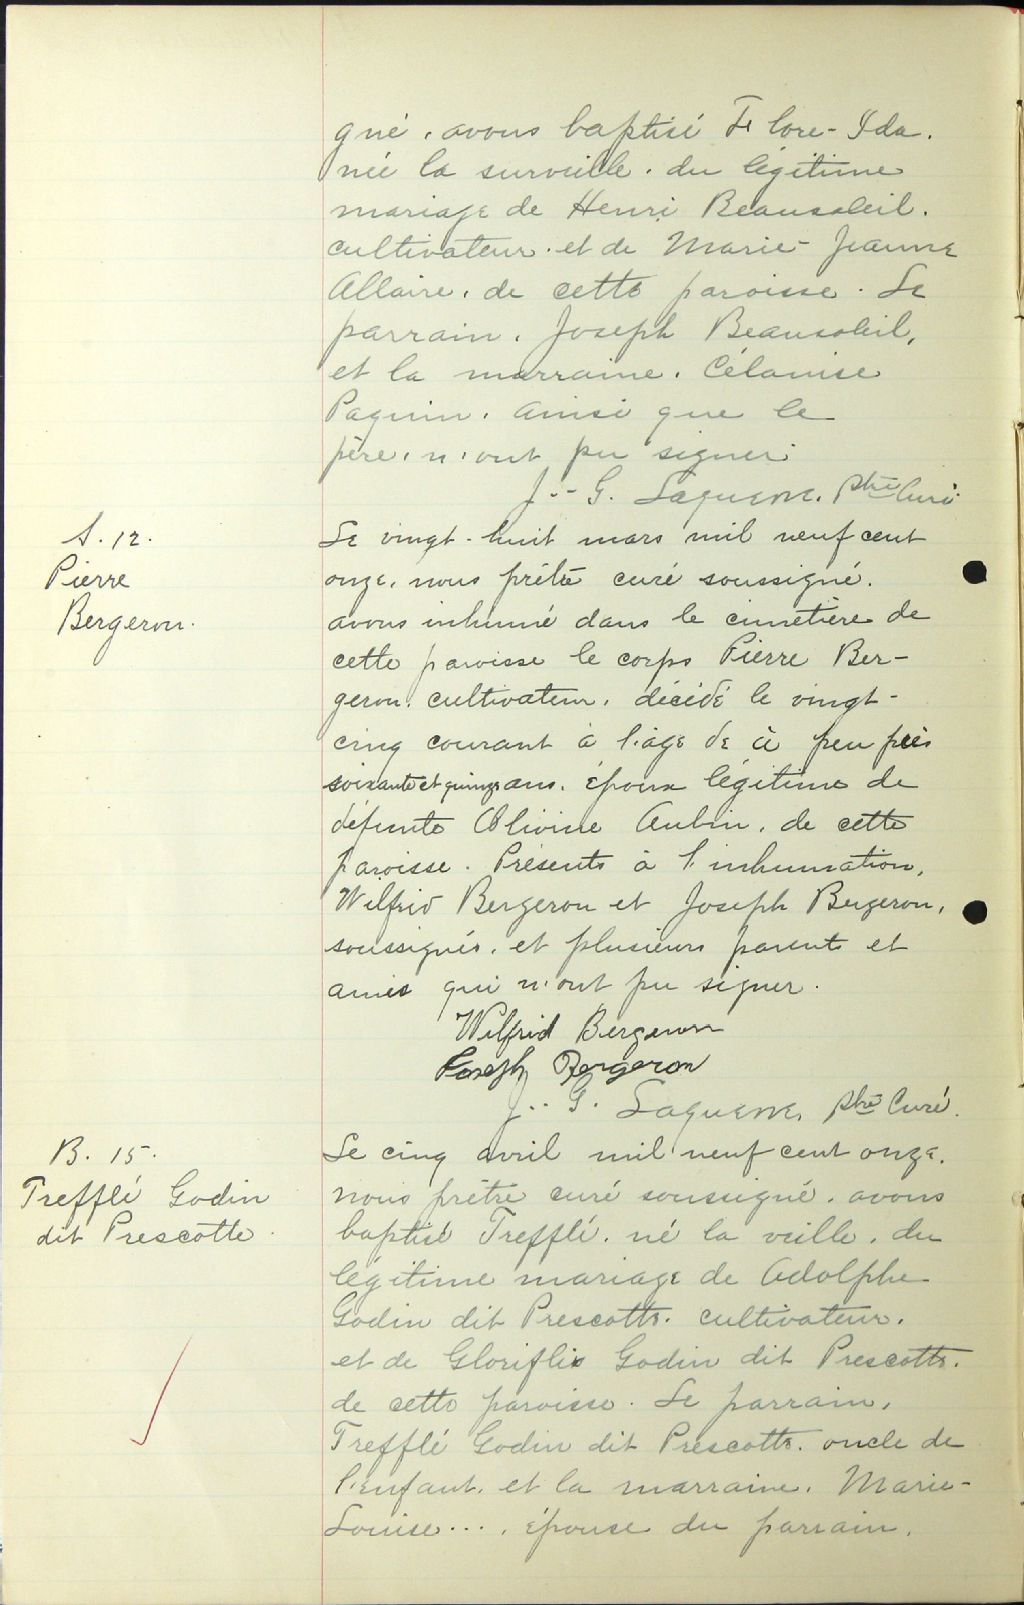 gné, avons baptisé Flore-Ida,
née la surveille, du légitime
mariage de Henri Beausoleil,
cultivateur, et de Marie-Jeanne
Allaire, de cette paroisse. Le
parrain, Joseph Beausoleil,
et la marraine, Célanise
Paquin, ainsi que le
père, n'ont pu signer.
J.-G. Laquerre, Ptre Curé.
S. 12.
Pierre
Bergeron.
Le vingt-huit mars mil neuf cent
onze, nous prêtre curé soussigné,
avons inhumé dans le cimetière de
cette paroisse le corps Pierre Ber-
geron, cultivateur, décédé le vingt-
cinq courant à l'âge de à peu près
soixante et quinze ans, époux légitime de
défunte Olivine Aubin, de cette
paroisse. Présents à l'inhumation,
Wilfrid Bergeron et Joseph Bergeron,
soussignés, et plusieurs parents et
amis qui n'ont pu signer.
Wilfrid Bergeron
Joseph Bergeron
J.-G. Laquerre, Ptre Curé.
B. 15.
Trefflé Godin
dit Prescotte.
Le cinq avril mil neuf cent onze,
nous prêtre curé soussigné, avons
baptisé Trefflé, né la veille, du
légitime mariage de Adolphe
Godin dit Prescotte, cultivateur,
et de Gloriflis Godin dit Prescotte,
de cette paroisse. Le parrain,
Trefflé Godin dit Prescotte, oncle de
l'enfant, et la marraine, Marie-
Louise..., épouse du parrain,